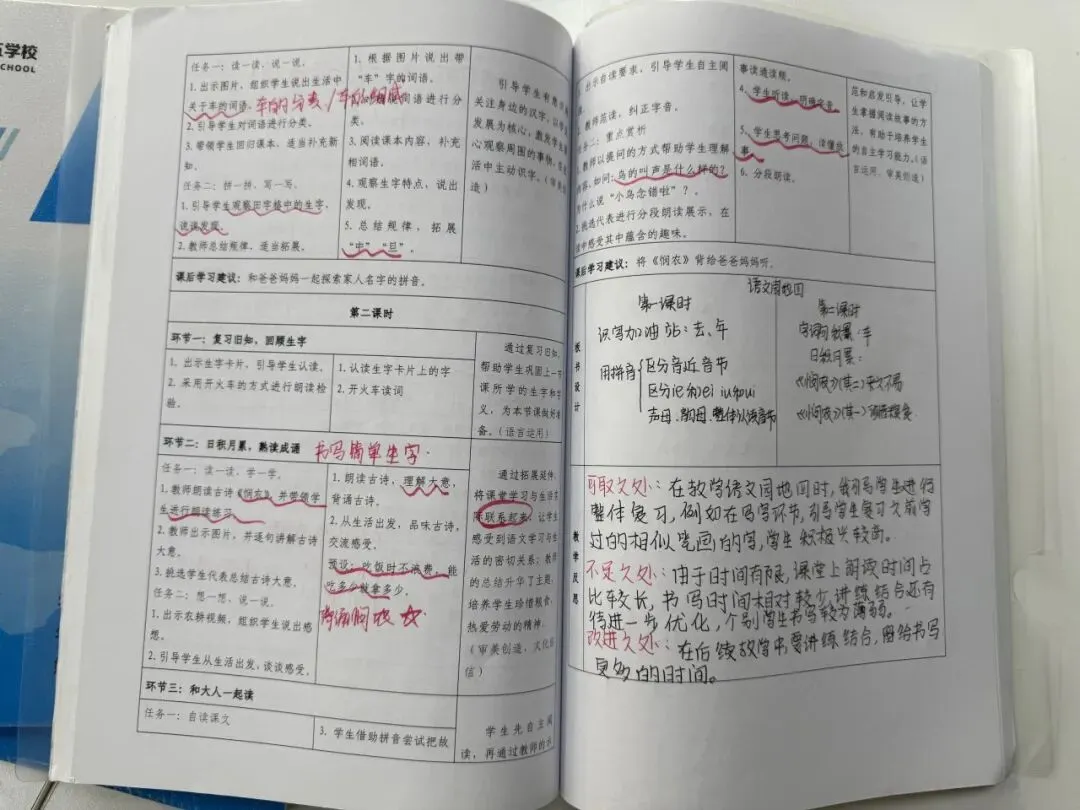 五学校
SCHOOL
任务一：读一读，说一说。
1. 出示图片，组织学生说出生活中
关于车的词语。
车的分类/车的组成
2. 引导学生对词语进行分类。
3. 带领学生回归课本，适当补充新
知。
任务二：拼一拼，写一写。
1. 引导学生观察田字格中的生字，
说说发现。
2. 教师总结规律，适当拓展。
1. 根据图片说出带
“车”字的词语。
词语进行分
类。
3. 阅读课本内容，补充
相词语。
4. 观察生字特点，说出
发现。
5. 总结规律，拓展
“中”“旦”。
引导学生有意识
关注身边的汉字，以学生
发展为核心，激发学生
心观察周围的事物，在生
活中主动识字。（审美创
造）
课后学习建议：和爸爸妈妈一起探索家人名字的拼音。
第二课时
环节一：复习旧知，回顾生字
1. 出示生字卡片，引导学生认读。
2. 采用开火车的方式进行朗读检
验。
1. 认读生字卡片上的字
2. 开火车读词
通过复习旧知，
帮助学生巩固上一节
课所学的生字和字
义，为本节课做好准
备。（语言运用）
环节二：日积月累，熟读成诵
书写简单生字.
任务一：读一读，学一学。
1. 教师朗读古诗《悯农》，并带领学
生进行朗读练习。
2. 教师出示图片，并逐句讲解古诗
大意。
3. 挑选学生代表总结古诗大意。
任务二：想一想，说一说。
1. 出示农耕视频，组织学生说出感
想。
2. 引导学生从生活出发，谈谈感受。
1. 朗读古诗，理解大意，
背诵古诗。
2. 从生活出发，品味古诗，
交流感受。
预设：吃饭时不浪费，能
吃多少就拿多少。
通过拓展延伸，
将课堂学习与生活实
际联系起来，让学生
感受到语文学习与生
活的密切关系；教师
的总结升华了主题，
培养学生珍惜粮食、
热爱劳动的精神。
（审美创造、文化自
信）
环节三：和大人一起读
任务一：自读课文
3. 学生借助拼音尝试把故
学生先自主阅
读，再通过教师的示
出示自读要求，引导学生自主阅
读。
教师范读，纠正字音。
任务二：重点赏析
教师以提问的方式帮助学生理解
内容。如问：鸟的叫声是什么样的？
为什么说“小鸟念错啦”？。
2. 挑选代表进行分段朗读展示，在
读中感受其中蕴含的趣味。
事读通读顺。
4. 学生听读，明确字音。
5. 学生思考问题，读懂故
事。
6. 分段朗读。
范和启发引导，让学
生掌握阅读故事的方
法，有助于培养学生
的自主学习能力。（语
言运用、审美创造）
课后学习建议：将《悯农》背给爸爸妈妈听。
板书设计
语文园地四
第一课时
识写加油站：去、年
用拼音
区分音近音节
区分ie和ei iu和ui
声母、韵母、整体认读音节
第二课时
字词句积累：车
日积月累：
《悯农》(其二)
《悯农》(其一)
教学反思
可取之处：在教学语文园地四时，我引导学生进行
整体复习，例如在写写环节，引导学生复习之前学
过的相似笔画的写，学生积极性较高。
不足之处：由于时间有限，课堂上朗读时间占
比较长，书写时间相对较少，讲练结合还有
待进一步优化，个别学生书写较为薄弱。
改进之处：在后续教学中要讲练结合，留给书写
更多的时间。